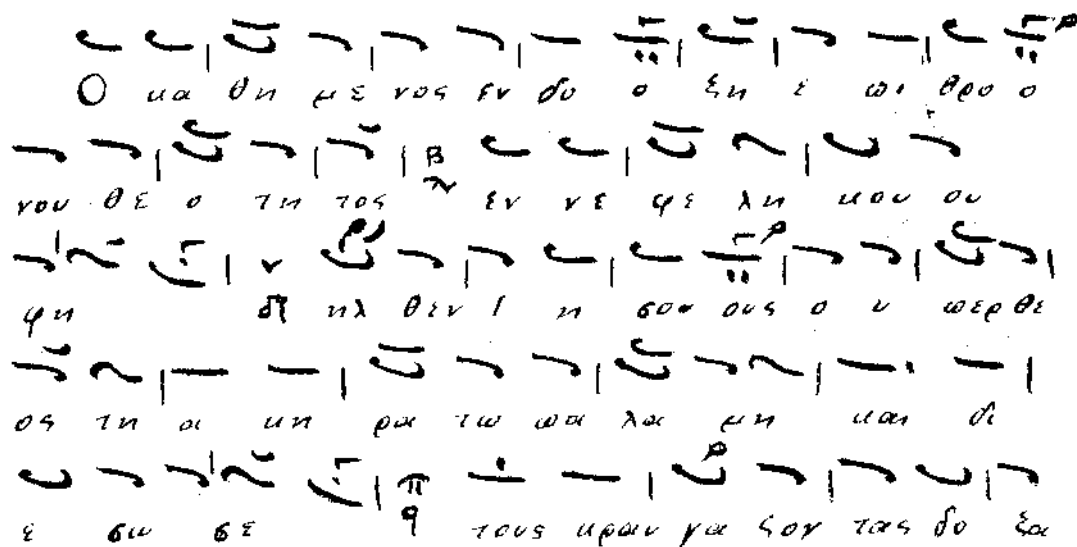 Ο κα θη με νος εν δο ο ξη ε πι θρο ο
νου θε ο τη τος εν νε φε λη κου ου
φη ηλ θεν Ι η σου ους ο υ περ θε
ος τη α κη ρα τω πα λα μη και δι
ε σω σε τους κραυ γα ζον τας δο ξα